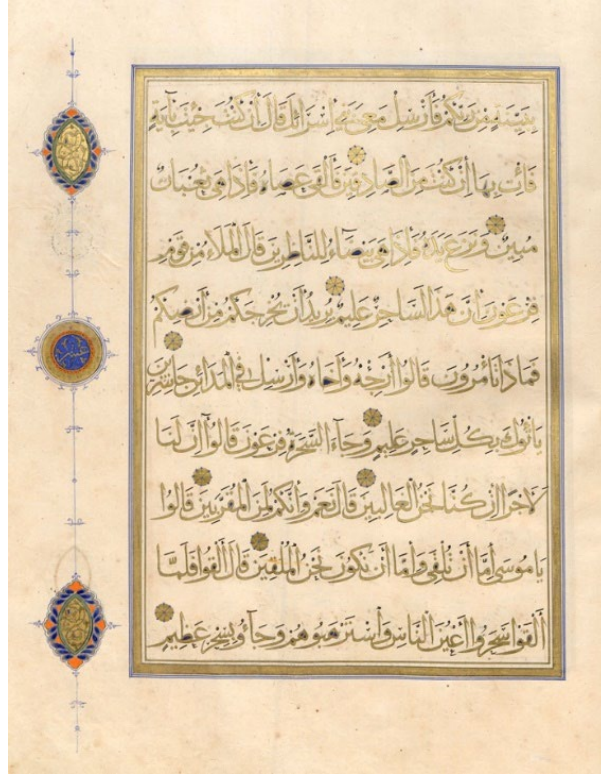 بِبَيِّنَةٍ مِنْ رَبِّكُمْ فَأَرْسِلْ مَعِيَ بَنِي إِسْرَائِلَ قَالَ إِنْ كُنْتَ جِئْتَ بِآيَةٍ
فَأْتِ بِهَا إِنْ كُنْتَ مِنَ الصَّادِقِينَ فَأَلْقَى عَصَاهُ فَإِذَا هِيَ ثُعْبَانٌ
مُبِينٌ وَنَزَعَ يَدَهُ فَإِذَا هِيَ بَيْضَاءُ لِلنَّاظِرِينَ قَالَ الْمَلَأُ مِنْ قَوْمِ
فِرْعَوْنَ إِنَّ هَذَا لَسَاحِرٌ عَلِيمٌ يُرِيدُ أَنْ يُخْرِجَكُمْ مِنْ أَرْضِكُمْ
فَمَاذَا تَأْمُرُونَ قَالُوا أَرْجِهْ وَأَخَاهُ وَأَرْسِلْ فِي الْمَدَائِنِ حَاشِرِينَ
يَأْتُوكَ بِكُلِّ سَاحِرٍ عَلِيمٍ وَجَاءَ السَّحَرَةُ فِرْعَوْنَ قَالُوا إِنَّ لَنَا
لَأَجْرًا إِنْ كُنَّا نَحْنُ الْغَالِبِينَ قَالَ نَعَمْ وَإِنَّكُمْ لَمِنَ الْمُقَرَّبِينَ قَالُوا
يَامُوسَى إِمَّا أَنْ تُلْقِيَ وَإِمَّا أَنْ نَكُونَ نَحْنُ الْمُلْقِينَ قَالَ أَلْقُوا فَلَمَّا
أَلْقَوْا سَحَرُوا أَعْيُنَ النَّاسِ وَاسْتَرْهَبُوهُمْ وَجَاؤُ بِسِحْرٍ عَظِيمٍ